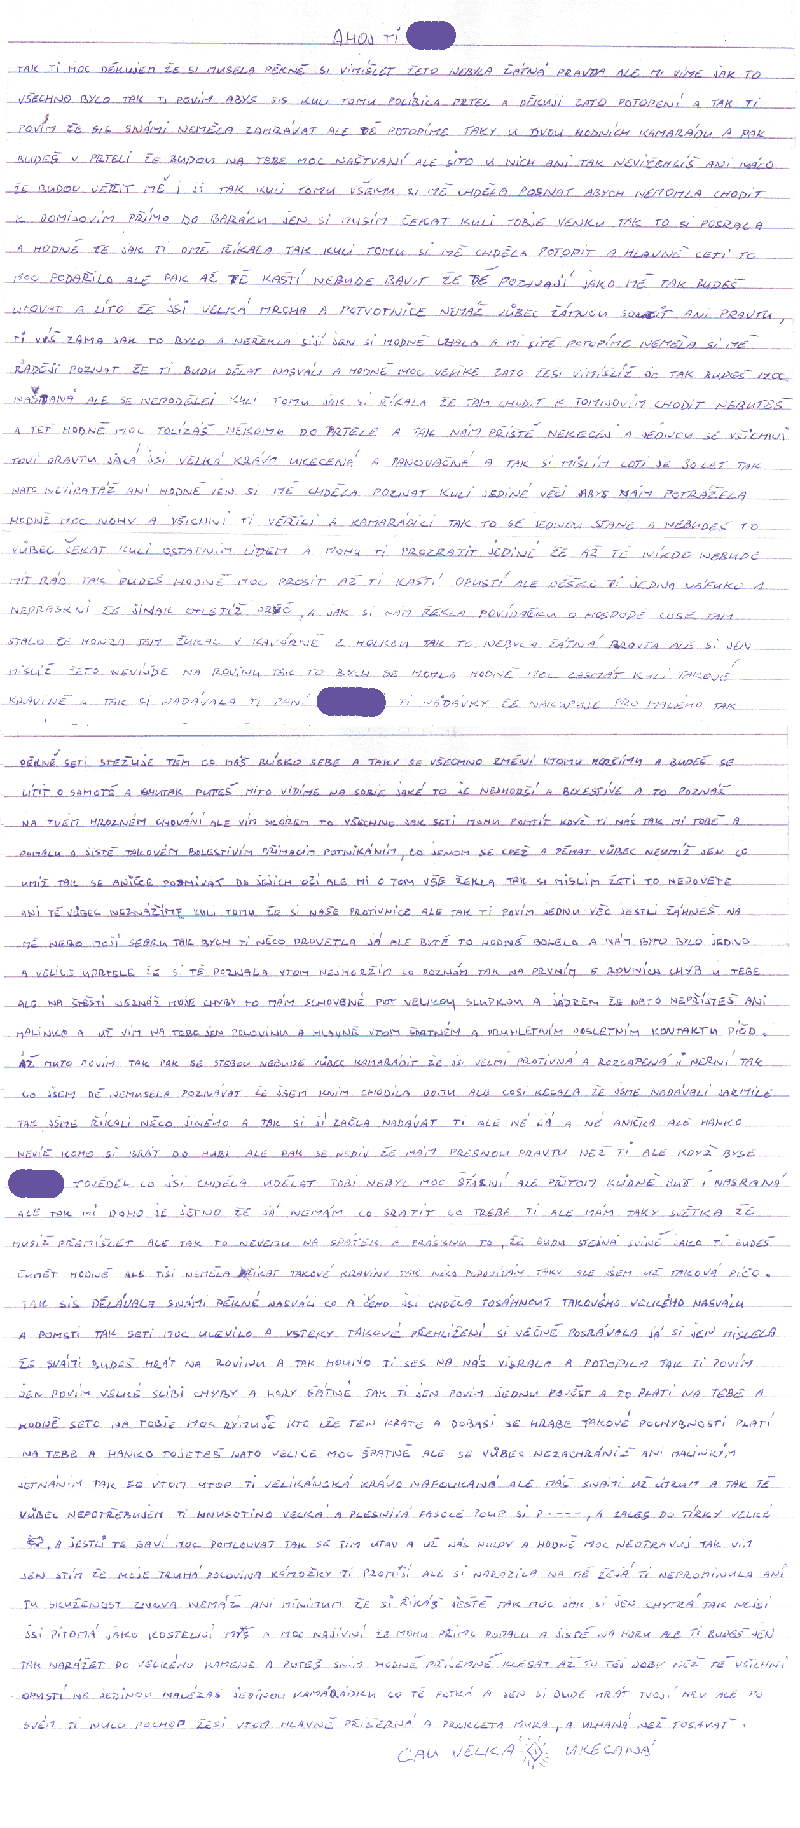 AHOJ TI
TAK TI MOC DĚKUJEM ŽE SI MUSELA PĚKNĚ SI VIMIŠLET ŽETO NEBYLA ŽÁTNÁ PRAVDA ALE MI VÍME JAK TO
VŠECHNO BYLO TAK TI POVÍM ABYS SIS KULI TOMU POLÍBILA PRTEL A DĚKUJI ZATO POTOPENÍ A TAK TI
POVÍM ŽE SIS SNÁMI NEMĚLA ZAHRÁVAT ALE DĚ POTOPÍME TAKY U TVOU HODNÍCH KAMARÁDU A PAK
BUDEŠ V PRTELI ŽE BUDOU NA TEBE MOC NAŠTVANÍ ALE SITO U NICH ANI TAK NEVIŽEHLIŠ ANI MÁLO
ŽE BUDOU VĚŘIT MĚ I JÍ TAK KULI TOMU VŠEMU SI MĚ CHDĚLA POSNAT ABYCH NEMOHLA CHODIT
K DOMINOVÍM PŘÍMO DO BARÁKU JEN SI MUSÍM ČEKAT KULI TOBJE VENKU TAK TO SI POSRALA
A HODNĚ ŽE JAK TI OMĚ ŘÍKALA TAK KULI TOMU SI MĚ CHDĚLA POTOPIT A HLAVNĚ CETI TO
MOC PODAŘILO ALE PAK AŽ TĚ KAŠTÍ NEBUDE BAVIT ŽE DĚ POZNAJÍ JAKO MĚ TAK BUDEŠ
LITOVAT A LÍTO ŽE JSI VELKÁ MRCHA A POTVOTNICE NEMÁŠ VŮBEC ŽÁTNOU SOUCIT ANI PRAVTU,
TI VÍŠ ZAMA JAK TO BYLO A NEŘEKLA SIJÍ JEN SI HODNĚ LHALA A MI SITĚ POTOPÍME NEMĚLA SI MĚ
RADĚJI POZNAT ŽE TI BUDU DĚLAT NASVÁLI A HODNĚ MOC VELIKÉ ZATO ŽESI VIMÍSLÍŽ JO TAK BUDEŠ MOC
NAŠTVANÁ ALE SE NEPODĚLEJ KULI TOMU JAK SI ŘÍKALA ŽE TAM CHODIT K TOMINOVÍM CHODIT NEBUTEŠ
A TEŤ HODNĚ MOC TOLÍZAŠ NĚKOMU DO PRTELE A TAK NÁM PŘÍŠTĚ NEKECEJ A JEDINOU SE VŠICHNI
TOVÍ PRAVTU JAKÁ JSI VELKÁ KRÁVA UKECANÁ A PANOVAČNÁ A TAK SI MISLÍM COTI JE 30 LET TAK
NATO NEVIPATÁŽ ANI HODNĚ JEN SI MĚ CHDĚLA POZNAT KULI JEDINÉ VĚCI ABYS NÁM POTRÁŽELA
HODNĚ MOC NOHY A VŠICHNI TI VĚŘILI A KAMARÁDILI TAK TO SE JEDNOU STANE A NEBUDEŠ TO
VŮBEC ČEKAT KULI OSTATNÍM LIDEM A MOHU TI PROZRATIT JEDINĚ ŽE AŽ TĚ NIKDO NEBUDE
MÍT RÁD TAK BUDEŠ HODNĚ MOC PROSIT AŽ TI KAŠTÍ OPUSTÍ ALE
NEPRASKNI ŽE JINAK A JAK SI NÁM ŘEKLA POVÍDAČKU O HOSPODĚ COSE TAM
STALO ŽE HONZA TAM ŽUKAL V KAVÁRNĚ Z HOLKOU TAK TO NEBYLA ŽÁTNÁ PRAVTA ALE SI JEN
MISLÍŽ ŽETO NEVIJDE NA ROVINU TAK TO BYCH SE MOHLA HODNĚ MOC KULI TAKOVÉ
KRAVINĚ A TAK SI NADÁVALA TI PANÍ TI NÁDÁVKY ŽE NAKUPUJE PRO MALÉHO TAK
PĚKNĚ SETI STĚŽUJE TĚM CO MÁŠ BLÍSKO SEBE A TAKY SE VŠECHNO ZMĚNÍ KTOMU HORŠÍMU A BUDEŠ SE
CÍTIT O SAMOTĚ A PUTEŠ MÍTO VIDÍME NA SOBJE JAKÉ TO JE NEJHORŠÍ A BOLESTIVÉ A TO POZNÁŠ
NA TVÉM HROZNÉM CHOVÁNÍ ALE VÍM SKOŘEM TO VŠECHNO JAK SETI MOHU POMTIT KDYŽ TI NÁS TAK MI TOBĚ A
POMALU A JISTĚ TAKOVÉM BOLESTIVÍM PŘÍMACÍM POTNIKÁNÍM, CO JENOM SE CPEŽ A PĚHAT VŮBEC NEUMÍŽ JEN CO
UMÍŽ TAK SE ANIČCE PODMÍVAT DO JEJÍCH OČÍ ALE MI O TOM VŠE ŘEKLA TAK SI MISLÍM ŽETI TO NEPOVETE
ANI TĚ VŮBEC NEZNÁŽÍME KULI TOMU ŽE SI NAŠE PROTIVNICE ALE TAK TI POVÍM JEDNU VĚC JESTLI ŽÁHNEŠ NA
MĚ NEBO MOJÍ SEGRU TAK BYCH TI NĚCO PROVETLA JÁ ALE BYTĚ TO HODNĚ BOLELO A NÁM BYTO BYLO JEDNO
A VELICE UPRTELE ŽE SI TĚ POZNALA VTOM NEJHORŽÍM CO POZNÁM TAK NA PRVNÍM A ROVNÍCH CHYB U TEBE
ALE NA ŠTĚSTÍ NEZNÁŽ MOJE CHYBY TO MÁM SCHOVENÉ POT VELIKOU SLUPKOU A JÁDREM ŽE NATO NEPŘIJTEŠ ANI
MALINKO A UŽ VÍM NA TEBE JEN POLOVINU A HLAVNĚ VTOM ŠPATNÉM A DLUHLETNÍM POSLETNÍM KONTAKTU PÍČO.
AŽ MUTO POVÍM TAK PAK SE STEBOU NEBUDE VŮBEC KAMARÁDIT ŽE JSI VELMI PROTIVNÁ A ROZCAPENÁ I NERVNÍ TAK
CO JSEM DĚ NEMUSELA POZNÁVAT ŽE JSEM KNIM CHODILA DOMU ALE COSI KECALA ŽE JSME NADÁVALI JARMILE
TAK JSME ŘÍKALI NĚCO JINÉHO A TAK SI JÍ ZAČLA NADÁVAT TI ALE NÉ JÁ A NÉ ANIČKA ALE HANKO
NEVÍŽ KOHO SI BRÁT DO HUBI ALE PAK SE NEDIV ŽE MÁM PŘESNOU PRAVTU NEŽ TI ALE KDYŽ BYSE
TOVĚDĚL CO JSI CHDĚLA UDĚLAT TOBI NEBYL MOC ŠŤASNÍ ALE PŘITOM KLIDNĚ BUŤ I NASRANÁ
ALE TAK MI DOHO JE JETNO ŽE JÁ NEMÁM CO SRATIT CO TŘEBA TI ALE MÁM TAKY SVĚTKA ŽE
MUSÍŽ PŘEMÍŠLET ALE TAK TO NEVEMU NA SPÁTEK A PRÁSKNU TO, ŽE BUDU STEJNÁ SVINĚ JAKO TI BUDEŠ
ČUMĚT HODNĚ ALE TISI NEMĚLA ŘÍKAT TAKOVÉ KRAVINY TAK NĚCO TAKY ALE JSEM UŽ TAKOVÁ PÍČO.
TAK SIS DĚLÁVALA SNÁMI PĚKNĚ NASVÁLI CO A ČEHO JSI CHDĚLA TOSÁHNOUT TAKOVÉHO VELIKÉHO NASVÁLU
A POMSTI TAK SETI MOC ULEVILO A VSTEKY TAKOVÉ PŘEHLÍŽENÍ SI VĚČNĚ POSRÁVALA JÁ SI JEN MISLELA
ŽE SNÁMI BUDEŠ HRÁT NA ROVINU A TAK HOUNO TI SES NA NÁS VISRALA A POTOPILA TAK TI POVÍM
JEN POVÍM VELIKÉ SLIBI CHYBY A HORY ŠÁTNÉ TAK TI JEN POVÍM JEDNU POVĚST A TO PLATÍ NA TEBE A
HODNĚ SETO NA TOBJE MOC RÝMUJE KTO LŽE TEN KRATE A DOBASI SE HRABE TAKOVÉ POCHYBNOSTI PLATÍ
NA TEBE A HANKO TOJETEŠ NATO VELICE MOC ŠPATNĚ ALE SE VŮBEC NEZACHRÁNÍŽ ANI MALINKÝM
JETNÁNÍM PAK SE VTOM UTOP TI VELIKÁNSKÁ KRÁVO NAFOUKANÁ ALE MÁŠ SNÁMI UŽ ÚTRUM A TAK TĚ
VŮBEC NEPOTŘEBUJEM TI HNUSOTINO VELKÁ A PLESNIVÁ FASOLE SI P----, A ZALEŠ DO TÍRKY VELIKÉ
, A JESTLI TĚ BAVÍ MOC POMLOUVAT TAK SE TIM UTAV A UŽ NÁS NIKDY A HODNĚ MOC NEOTRAVUJ TAK VÍM
JEN STÍM ŽE MOJE TRUHÁ POLOVINA KÁMOŽKY TI PROMÍJÍ ALE SI NARAZILA NA MĚ ŽEJÁ TI NEPROMINULA ANI
TU SKUŽENOST ŽIVOVA NEMÁŽ ANI MINIMUM ŽE SI ŘÍKÁŠ JEŠTĚ TAK MOC JAK SI JEN CHYTRÁ TAK NEJSI
JSI PITOMÁ JAKO KOSTELNÍ MYŠ A MOC NAJIVNÍ ŽE MOHU PŘÍMO POMALU A JISTĚ NA HORU ALE TI BUDEŠ JEN
TAK NARÁŽET DO VELIKÉHO KAMENE A PUTEŠ SNIM HODNĚ PŘÍJEMNĚ KLESAT AŽ TO TÉJ DOBY NEŽ TĚ VŠICHNI
OPUSTÍ NA JEDINOU NALÉZÁŠ JEDINOU KAMARÁDKU CO TĚ POTKÁ A JEN SI BUDE HRÁT TVOJÍ HRU ALE PO
SVÉM TI NULO POCHOP ŽESI VTOM HLAVNĚ PŘÍŠERNÁ A PROKLETÁ MURA, A ULHANÁ NEŽ TOSAVAŤ.
ČAU VELKÁ UKECANÁ